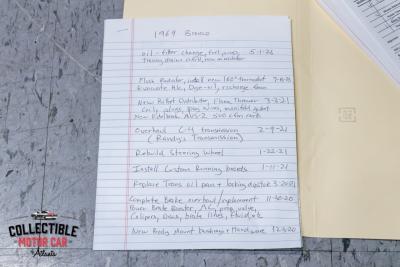 1969 Bronco
oil - filter change, full 5-1-23
Flush Radiator, install new 160° thermostat
Evacuate A/C, Dye-oil, recharge
New Distributor, 3-3-21
Coil, plugs, plug wires, manifold gasket
New Edelbrock AVS-2 500 cfm carb
Overhaul C-4 transmission 2-9-21
(Randy's Transmission)
Rebuild Steering Wheel 1-22-21
Install Custom Running boards 1-11-21
Replace Trans oil pan + locking dipstick
Complete Brake overhaul/replacement
Power Brake Booster, prop valve,
Calipers, brake lines, Fluid, etc
New Body Mount bushings + Hardware
COLLECTIBLE
MOTOR CAR
Atlanta